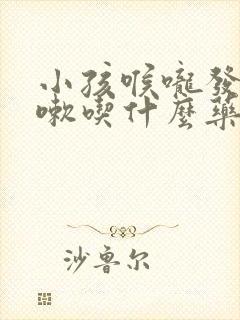 小孩喉嚨發
嗽喫什麼藥
沙鲁尔